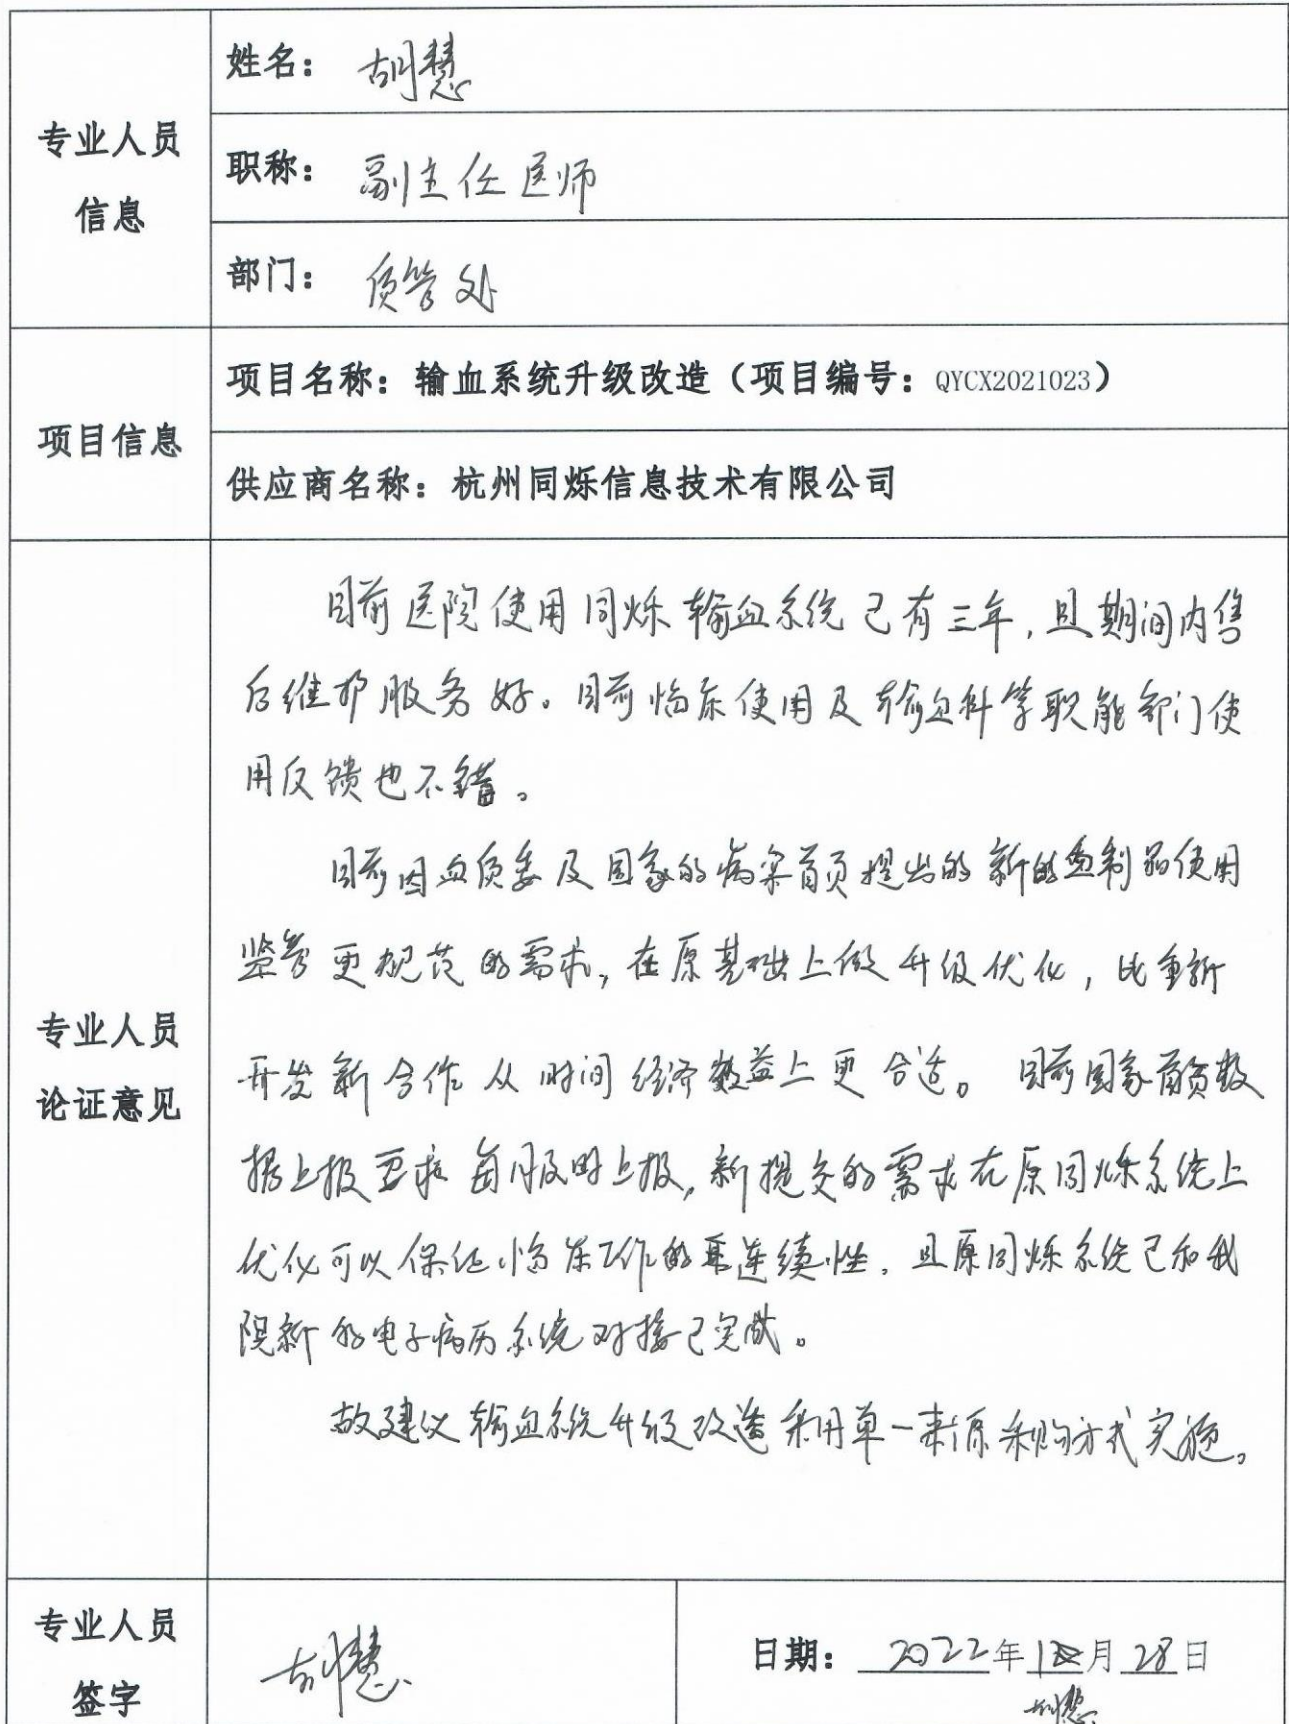 专业人员
信息
姓名： 胡慧
职称： 副主任医师
部门： 质管处
项目信息
项目名称：输血系统升级改造（项目编号：QYCX2021023）
供应商名称：杭州同烁信息技术有限公司
专业人员
论证意见
目前医院使用同烁输血系统已有三年，且期间内售
后维护服务好。目前临床使用及输血科等职能部门使
用反馈也不错。
目前因血质委及国家的病案首页提出的新的血制品使用
监管更规范的需求，在原基础上做升级优化，比重新
开发新合作从时间经济效益上更合适。目前国家首页数
据上报要求每月及时上报，新提交的需求在原同烁系统上
优化可以保证临床工作的连续性，且原同烁系统已和我
院新的电子病历系统对接已完成。
故建议输血系统升级改造采用单一来源采购方式实施。
专业人员
签字
胡慧
日期： 2022年1月28日
胡慧